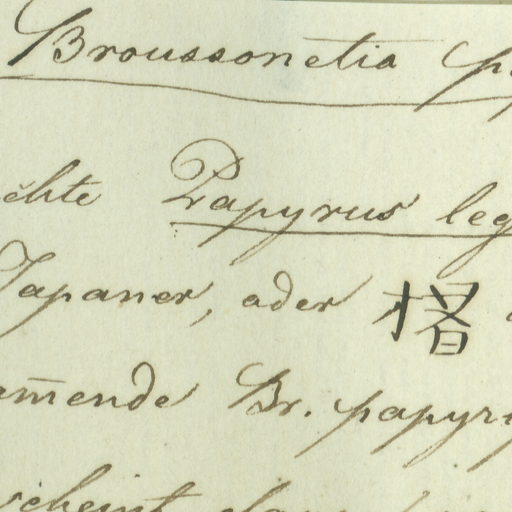 Broussonetia p
chte Papyrus leg
Japaner, oder 楮
am̄ende Br. papyr
scheint